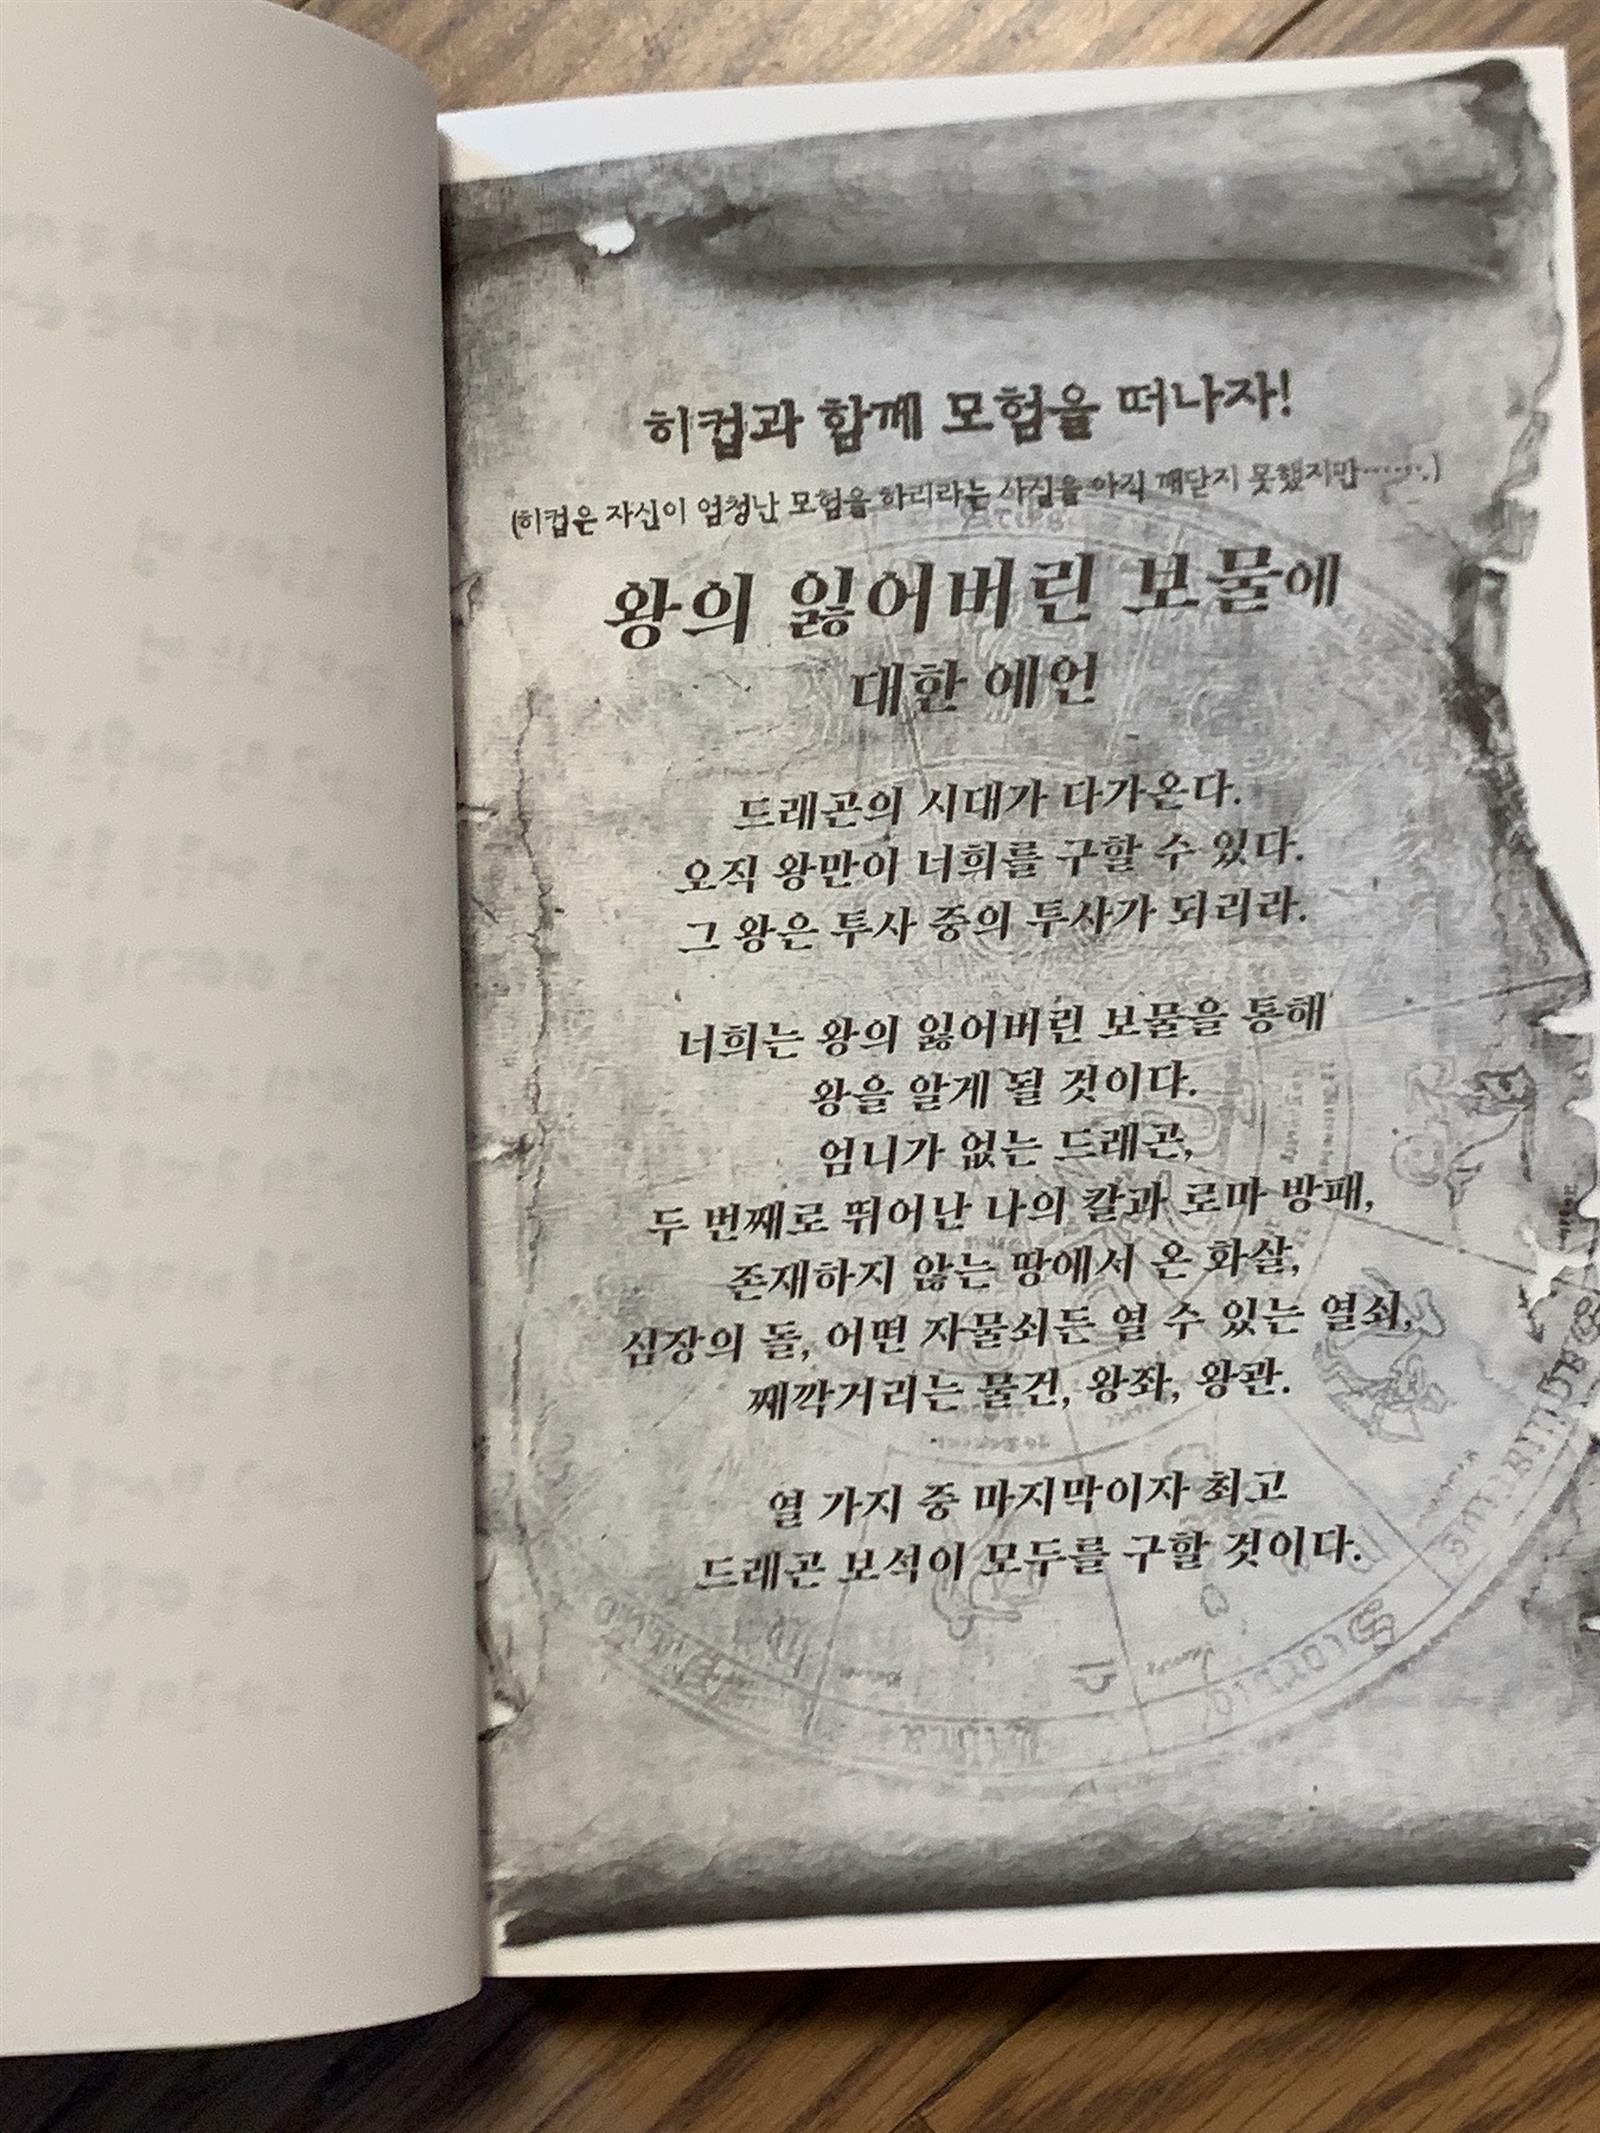 히컵과 함께 모험을 떠나자!
(히컵은 자신이 엄청난 모험을 하리라는 사실을 아직 깨닫지 못했지만…….)
왕의 잃어버린 보물에
대한 예언
드래곤의 시대가 다가온다.
오직 왕만이 너희를 구할 수 있다.
그 왕은 투사 중의 투사가 되리라.
너희는 왕의 잃어버린 보물을 통해
왕을 알게 될 것이다.
엄니가 없는 드래곤,
두 번째로 뛰어난 나의 칼과 로마 방패,
존재하지 않는 땅에서 온 화살,
심장의 돌, 어떤 자물쇠든 열 수 있는 열쇠,
째깍거리는 물건, 왕좌, 왕관.
열 가지 중 마지막이자 최고
드래곤 보석이 모두를 구할 것이다.